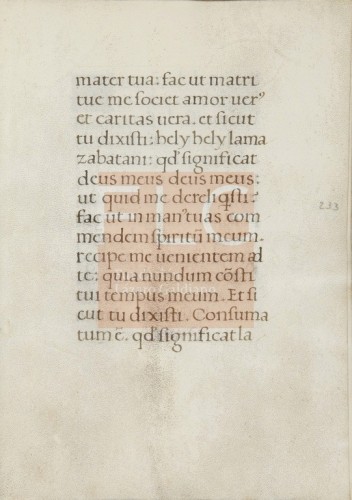 mater tua: fac ut matri
tue me societ amor uerꝰ
et caritas uera. et sicut
tu dixisti: hely hely lama
zabatani: qd' significat
deus meus deus meus:
ut quid me dereliqsti:
fac ut in manꝰ tuas com
mendem spiritū meum.
recipe me uenientem ad
te: quia nundum cōsti
tui tempus meum. Et si
cut tu dixisti. Consuma
tum ē. qd' significat la
233